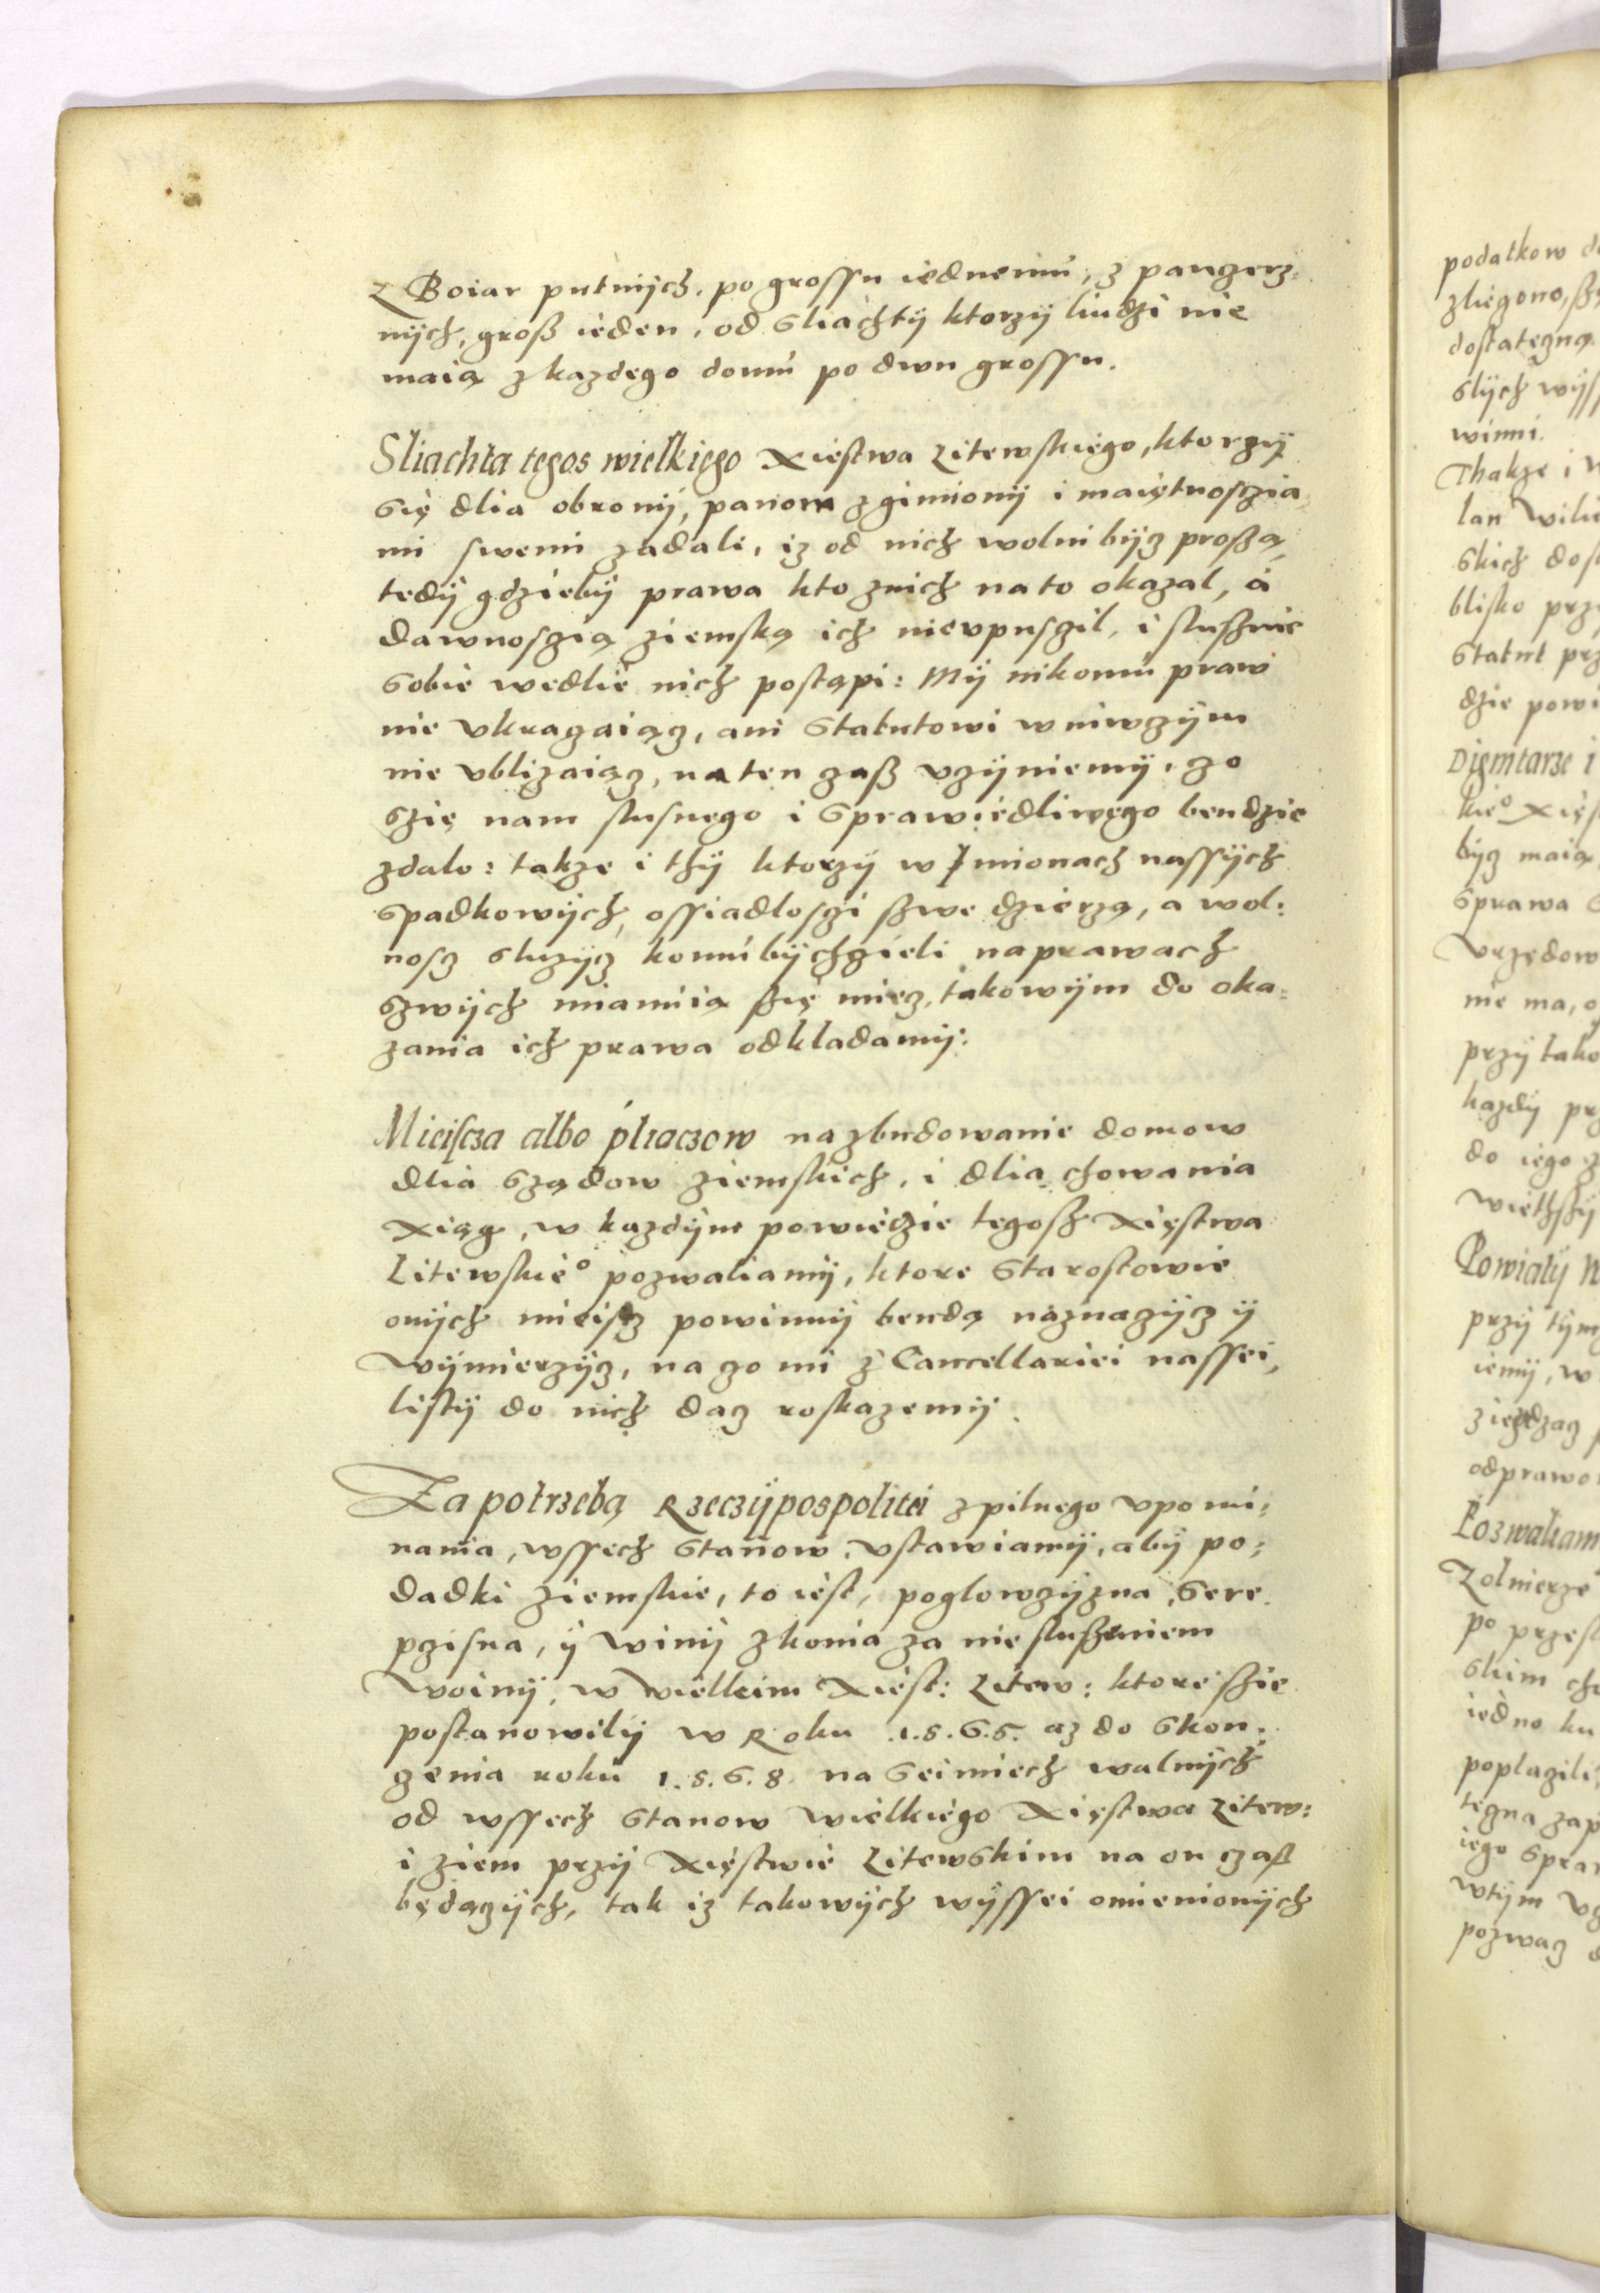 Z Boiar putnijch, po grossu iednemu, z panczerz-
nijch, grosz ieden, od sliachtij ktorzij liudzi nie
maią z kazdego domu po dwu grossu.
Sliachta tegos wielkiego Xiestwa Litewskiego, ktorzij
się dlia obronij, panom z gimionij i maiętnosczia
mi swemi zadali, iz od nich wolni bijcz proszą,
tedij gdziebij prawa kto znich na to okazal, a
dawnosczią ziemską ich nievpusczil, i slusznie
sobie wedlie nich postąpi: Mij nikomu praw
nie vkraczaiącz, ani Statutowi w niwczijm
nie vblizaiącz, na ten czasz vczijniemij, czo
szię nam slusnego i sprawiedliwego bendzie
zdalo: takze i thij ktorzij w Imionach nassijch
spadkowijch, ossiadlosczi szwe dzierzą, a wol-
nosz sluzijcz komubijchczieli na prawach
szwijch mianuią szię miecz, takowijm do oka-
zania ich prawa odkladamij:
Mieiscza albo pliaczow na zbudowanie domow
dlia sządow ziemskich, i dlia chowania
Xiąg, w kazdijm powieczie tegosz Xięstwa
Litewskie° pozwaliamij, ktore Starostowie
onijch mieiscz powinnij bendą naznaczijcz ij
wijmierzijcz, na czo mi z Cancellariei nassei,
listij do nich dacz roskazemij.
Za potrzebą Rzeczijpospolitei z pilnego vpomi-
nania, wssech Stanow, vstawiamij, abij po-
dadki ziemskie, to iest, poglowczijzna, Sere
pczisna, ij winij z konia za nie sluszeniem
woinij, w wielkim Xiest: Litew: ktore szie
postanowilij w Roku .1.5.6.5. az do skon-
czenia roku 1.5.6.8. na Seimiech walnijch
od wssech Stanow wielkiego Xięstwa Litew:
i ziem przij Xięstwie Litewskim na on czasz
będączijch, tak iz takowijch wijssei omienionijch
podatkow
dostateczną
winni.
Thakze i
skich
blisko
Statut
dzie
Digmtarze i
bijcz maią
sprawa
Vrzędow
nie ma,
przij
kazdij
do iego
Powiatij
przij tijm
iemij, w
Pozwaliam
Zolnierze
po
iedno ku
iego
wtijm
pozwacz